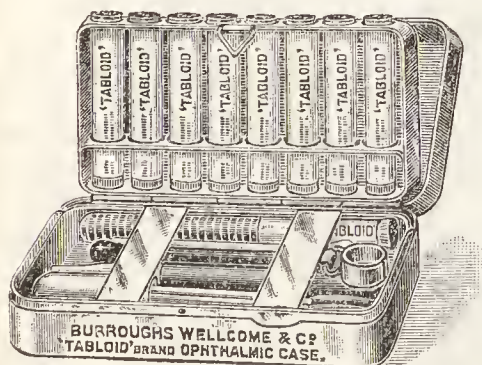 'TABLOID' 'TABLOID' 'TABLOID' 'TABLOID' 'TABLOID' 'TABLOID' 'TABLOID' 'TABLOID'
ABLOID'
BURROUGHS WELLCOME & Cº
'TABLOID' BRAND OPHTHALMIC CASE.